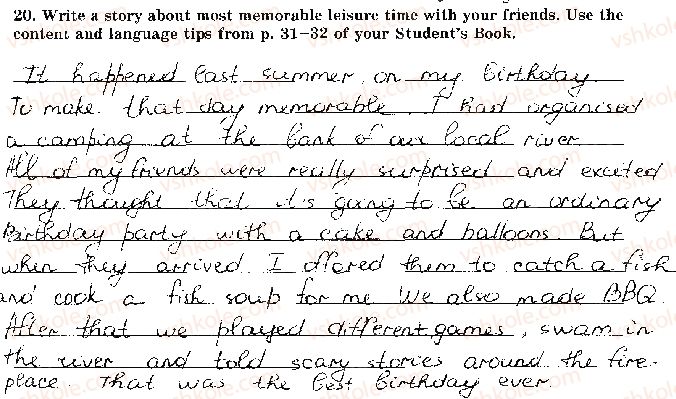 20. Write a story about most memorable leisure time with your friends. Use the
content and language tips from p. 31–32 of your Student's Book.
It happened last summer on my birthday.
To make that day memorable I had organised
a camping at the bank of our local river.
All of my friends were really surprised and excited
They thought that it's going to be an ordinary
Birthday party with a cake and balloons. But
when they arrived I offered them to catch a fish
and cook a fish soup for me. We also made BBQ.
After that we played different games, swam in
the river and told scary stories around the fire-
place. That was the best birthday ever.